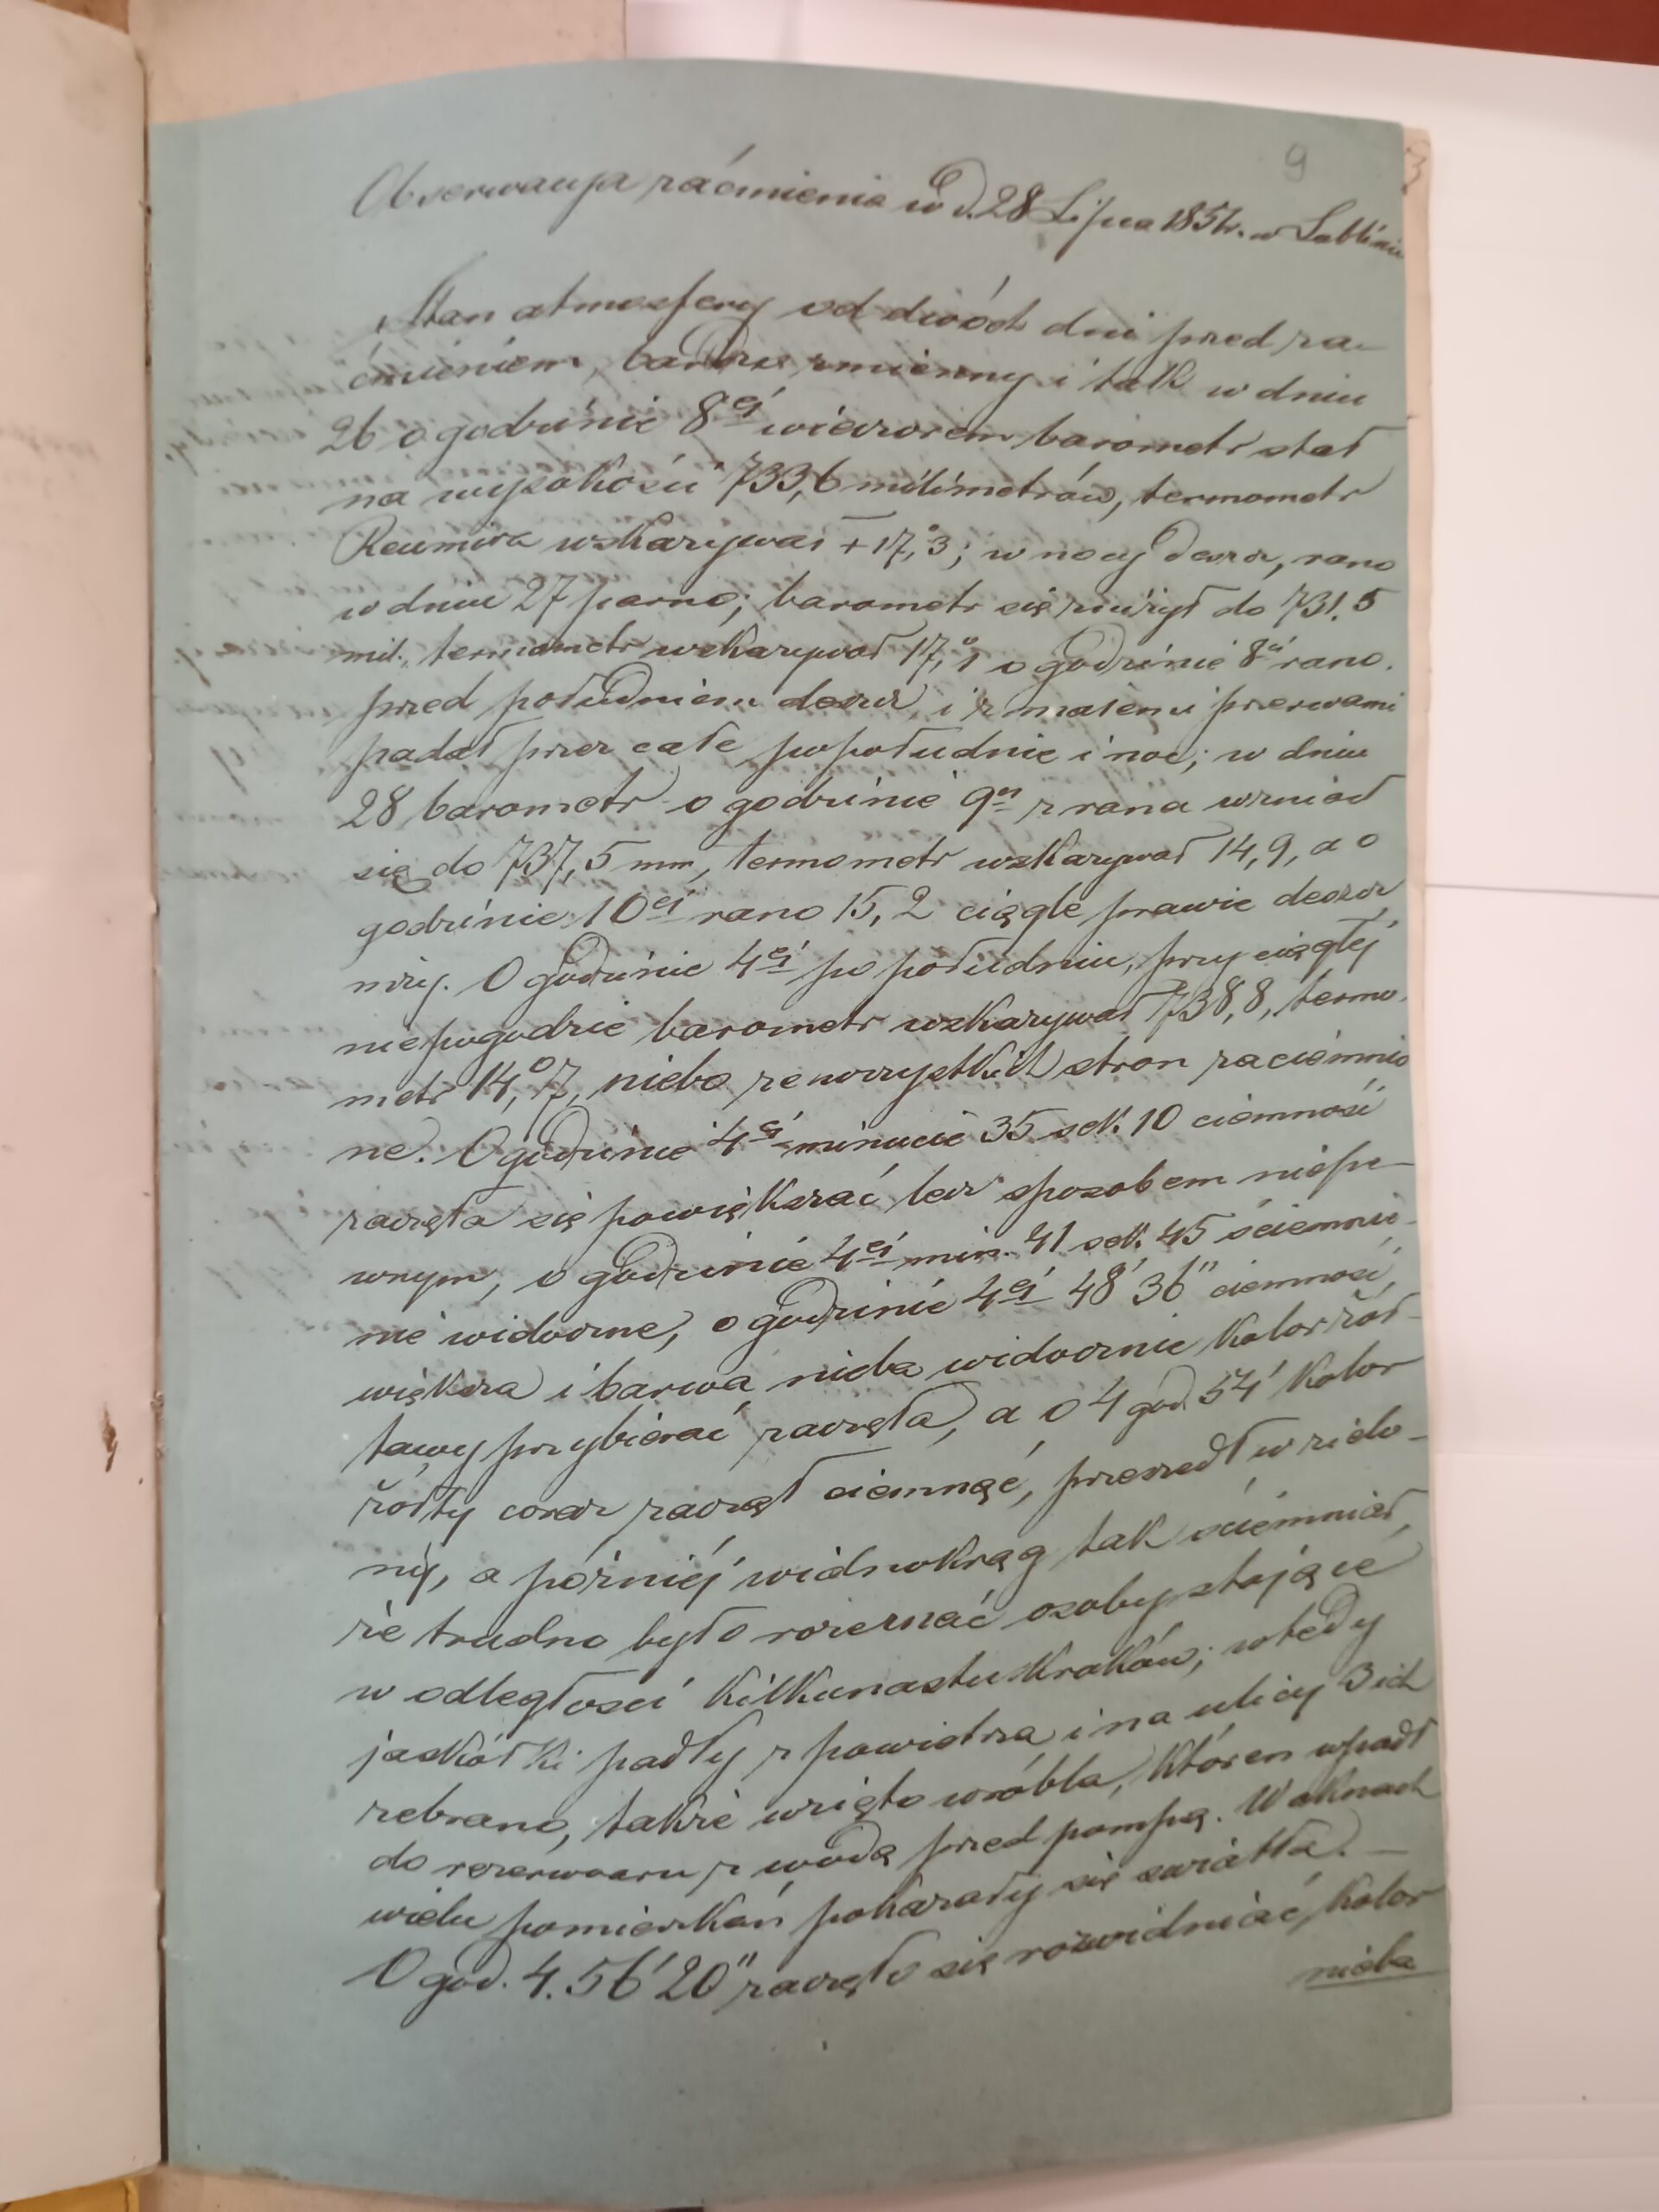 9
Obserwacyja zaćmienia w d. 28 Lipca 1851 r. w Lublinie
Stan atmosfery od dwóch dni przed za-
ćmieniem, bardzo zmienny i tak w dniu
26 o godzinie 8ej wieczorem barometr stał
na wysokości 733,6 milimetrów, termometr
Reumira wskazywał +17,°3; w nocy deszcz, rano
w dniu 27 parno; barometr się zniżył do 731.5
mil., termometr wskazywał 17,°1 o godzinie 8ej rano.
przed południem deszcz, i z małemi przerwami
padał przez całe popołudnie i noc; w dniu
28 barometr o godzinie 9ej z rana wzniósł
się do 737,5 mm, termometr wskazywał 14,9, a o
godzinie 10ej rano 15,2 ciągle prawie deszcz
mży. O godzinie 4ej po południu, przy ciągłéj
niepogodzie barometr wskazywał 738,8, termo-
metr 14,°7, niebo ze wszystkich stron zaciemnio
ne. O godzinie 4ej minucie 35 sek. 10 ciemność
zaczęła się powiększać lecz sposobem niepe-
wnym, o godzinie 4ej min. 41 sek. 45 ściemnie-
nie widoczne, o godzinie 4ej 48' 36" ciemność,
większa i barwa nieba widocznie kolor żół-
tawy przybierać zaczęła, a o 4 god. 54' kolor
żółty coraz zaczął ciemnąć, przeszedł w zielo-
ny, a póżniéj widnokrąg tak ściemniał,
że trudno było rozeznać osoby stojące
w odległości kilkunastu kroków; wtedy
jaskółki padły z powietrza i na ulicy 3 ich
zebrano, także wzięto wróbla, któren wpadł
do rezerwoaru z wodą przed pompą. W oknach
wielu pomieszkań pokazały się swiatła. —
O god. 4. 56' 20" zaczęło się rozwidniać, kolor
nieba